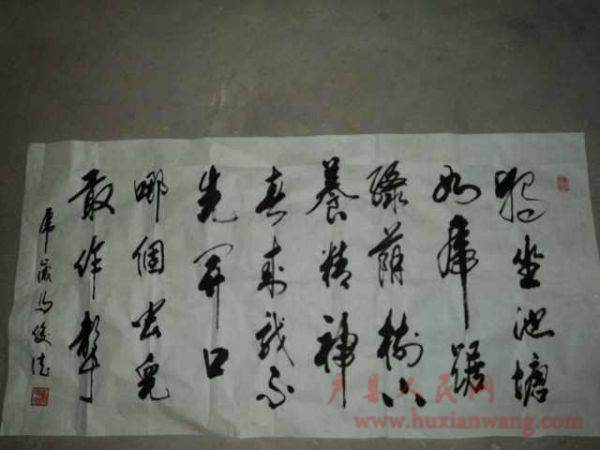 独坐池塘
如虎踞
綠蔭樹下
養精神
春來我不
先開口
哪個虫兒
敢作聲
虎歲馬俊
户县人民网
www.huxianwang.com